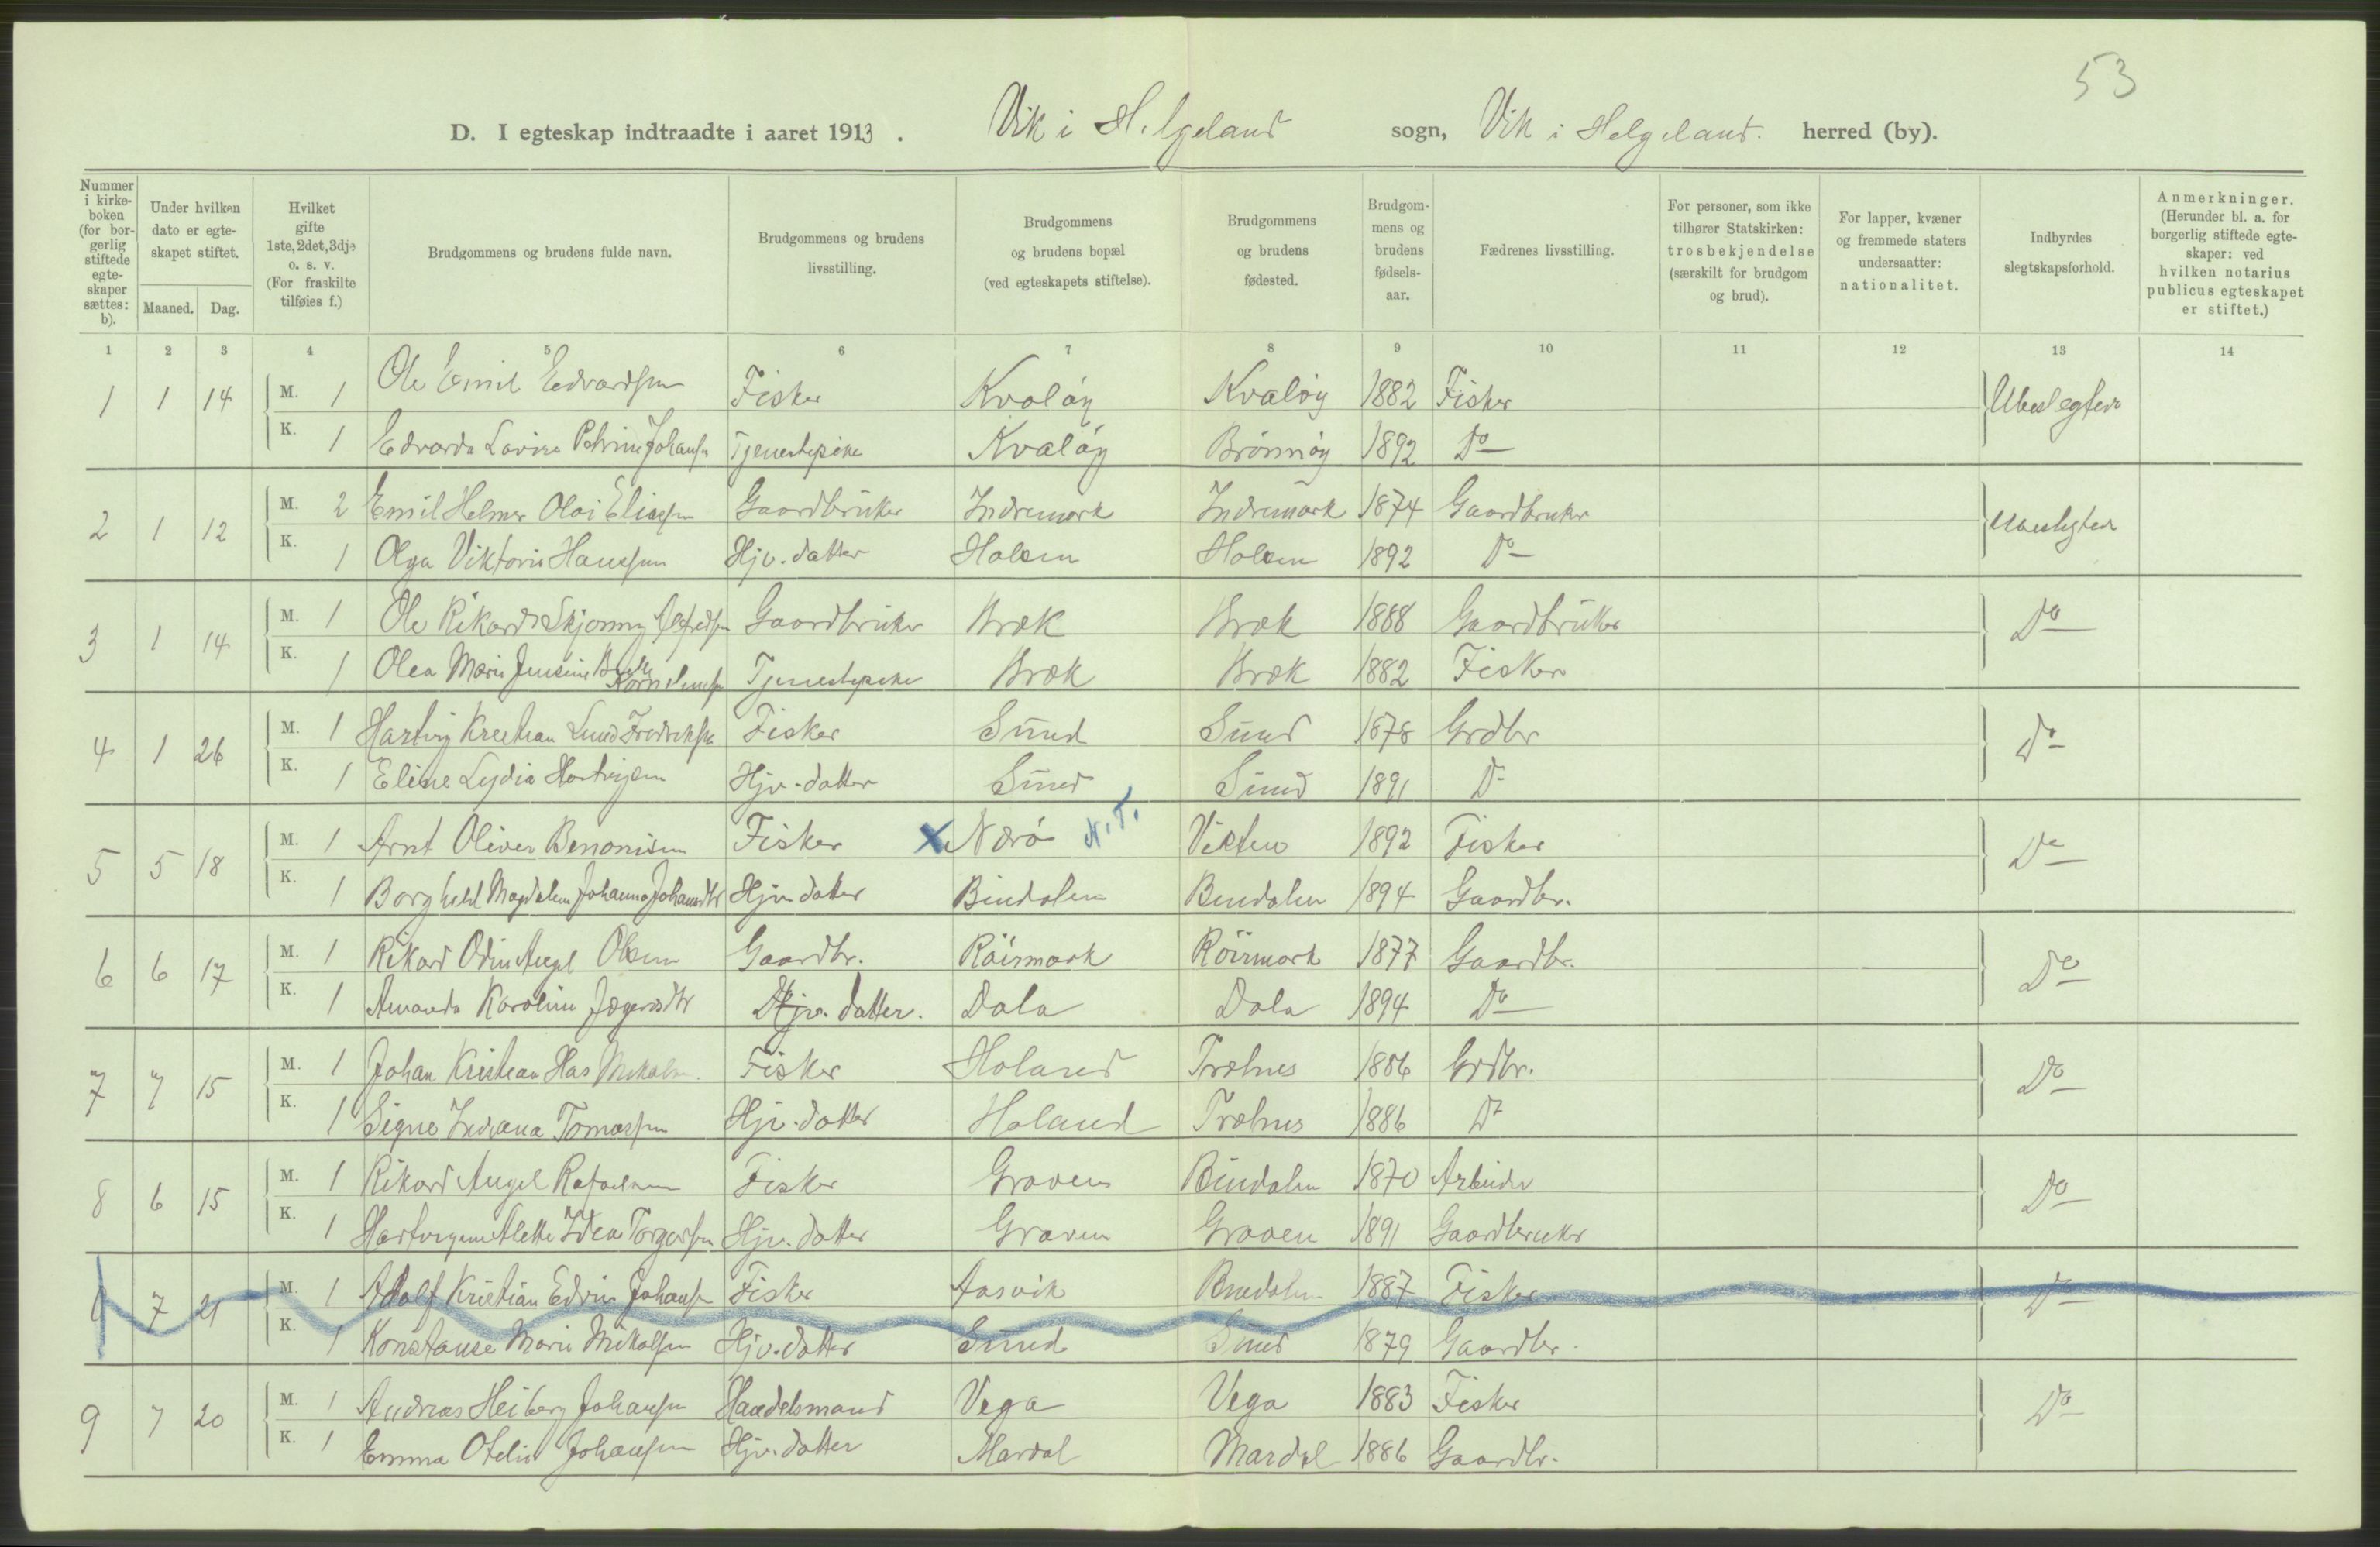 53
D. I egteskap indtraadte i aaret 1913. Vik i Helgeland sogn, Vik i Helgeland. herred (by).
Nummer i kirkeboken (for borgerlig stiftede egteskaper sættes: b).
Under hvilken dato er egteskapet stiftet.
Maaned. Dag.
Hvilket gifte 1ste, 2det, 3dje o. s. v. (For fraskilte tilføies f.)
Brudgommens og brudens fulde navn.
Brudgommens og brudens livsstilling.
Brudgommens og brudens bopæl (ved egteskapets stiftelse).
Brudgommens og brudens fødested.
Brudgommens og brudens fødselsaar.
Fædrenes livsstilling.
For personer, som ikke tilhører Statskirken: trosbekjendelse (særskilt for brudgom og brud).
For lapper, kvæner og fremmede staters undersaatter: nationalitet.
Indbyrdes slegtskapsforhold.
Anmerkninger. (Herunder bl. a. for borgerlig stiftede egteskaper: ved hvilken notarius publicus egteskapet er stiftet.)
1 2 3 4 5 6 7 8 9 10 11 12 13 14
1 1 14 M. 1 Ole Emil Edvardsen Fisker Kvaløy Kvaløy 1882 Fisker Ubeslegtede
K. 1 Edvarda Lovise Petrine Johansen Tjenestepike Kvaløy Brønnøy 1892 Do
2 1 12 M. 2 Emil Helmer Olai Eliassen Gaardbruker Indremark Indremark 1874 Gaardbruker Ubeslegtede
K. 1 Olga Viktoria Hanssen Hjv. datter Holmen Holmen 1892 Do
3 1 14 M. 1 Ole Rikard Skjønning Alfredsen Gaardbruker Bræk Bræk 1888 Gaardbruker Do
K. 1 Olea Marie Jensine Kornelinssen Tjenestepike Bræk Bræk 1882 Fisker
4 1 26 M. 1 Hartvig Kristian Lund Fredriksen Fisker Sund Sund 1878 Grdbr Do
K. 1 Eline Lydia Hartvigsen Hjv. datter Sund Sund 1891 Do
5 5 18 M. 1 Arnt Oliver Benonisen Fisker x Nærø N.T. Vikten 1892 Fisker Do
K. 1 Borghild Magdalena Johanna Johansdtr Hjv. datter Bindalen Bindalen 1894 Gaardbr.
6 6 17 M. 1 Rikard Odin Angel Olsen Gaardbr. Röismark Röismark 1877 Gaardbr. Do
K. 1 Amanda Karoline Jægersdtr Hjv. datter. Dala Dala 1894 Do
7 7 15 M. 1 Johan Kristian Has Mikalsen Fisker Holand Trælnes 1886 Grdbr. Do
K. 1 Signe Indiana Tomassen Hjv. datter Holand Trælnes 1886 Do
8 6 15 M. 1 Rikard Angel Rafaelsen Fisker Graven Bindalen 1870 Arbeider Do
K. 1 Hartvigine Alette Idea Torgersen Hjv. datter Graven Graven 1891 Gaardbruker
7 21 M. 1 Adolf Kristian Edvin Johansen Fisker Aasvik Bindalen 1887 Fisker Do
K. 1 Konstanse Marie Mikalsen Hjv. datter Sund Sund 1879 Gaardbr.
9 7 20 M. 1 Andreas Heiberg Johansen Handelsmand Vega Vega 1883 Fisker Do
K. 1 Emma Otelie Johansen Hjv. datter Mardal Mardal 1886 Gaardbr.